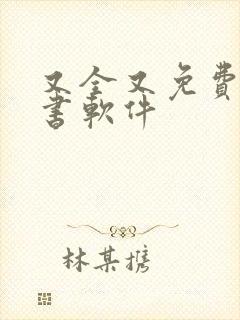 又全又免費
書軟件
林某攜